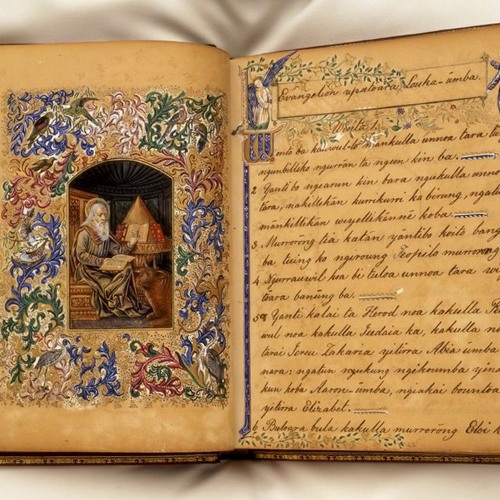 Evangelion upatoara Louka-ūmba.
Winta 1.
kauwul-lo mankulla unnoa tara
ngumbilliko ngurrōn ta ngeen kin ba.
2 Yanti bo ngearun kin bara ngukulla
tara, nakillikan kurrikurri kabirung,
mankillikan wiyellikannē koba
3. Murrorōng tia katān yantibo koito bang
ba tuing ko ngiroung Teopolo murrorong
4 Ngurrauwil koa bi tuloa unnoa tara w
toara banūng ba
5 Yanti kalai ta Herod noa kakulla
wul noa kakulla Iudaia ka, kakulla n
tarai Iereu Zakaria yitirra Abia-ūmba
nara: ngatun nukung ngikoumba
kun koba Aaron-ūmba, ngiakai bountoa
yitirra Elizabet.
6 Buloara bula kakulla murrorōng Eloi k